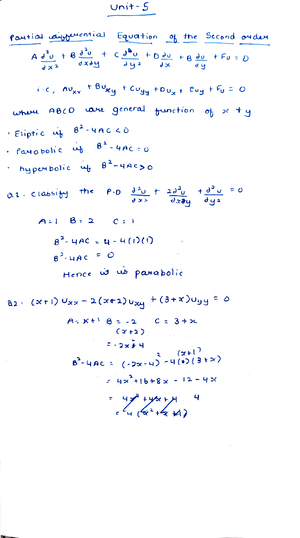 Unit-5
Partial differential Equation of the Second order
A ∂²u/∂x² + B ∂²u/∂x∂y + C ∂²u/∂y² + D ∂u/∂x + E ∂u/∂y + Fu = 0
i.e, Auxx + Buxy + Cuyy + Dux + Euy + Fu = 0
where ABCD are general function of x & y
· Eliptic if B²-4AC<0
· Parabolic if B²-4AC=0
· hyperbolic if B²-4AC>0
Q1. Classify the P.D ∂²u/∂x² + 2∂²u/∂x∂y + ∂²u/∂y² = 0
A=1 B=2 C=1
B²-4AC = 4-4(1)(1)
B²-4AC = 0
Hence it is parabolic
Q2. (x+1)Uxx - 2(x+2)Uxy + (3+x)Uyy = 0
A=x+1 B=-2 C=3+x
(x+2)
= -2x-4
B²-4AC = (-2x-4)² -4(x+1)(3+x)
= 4x²+16+8x-12-4x
= 4x²+4x+4 4